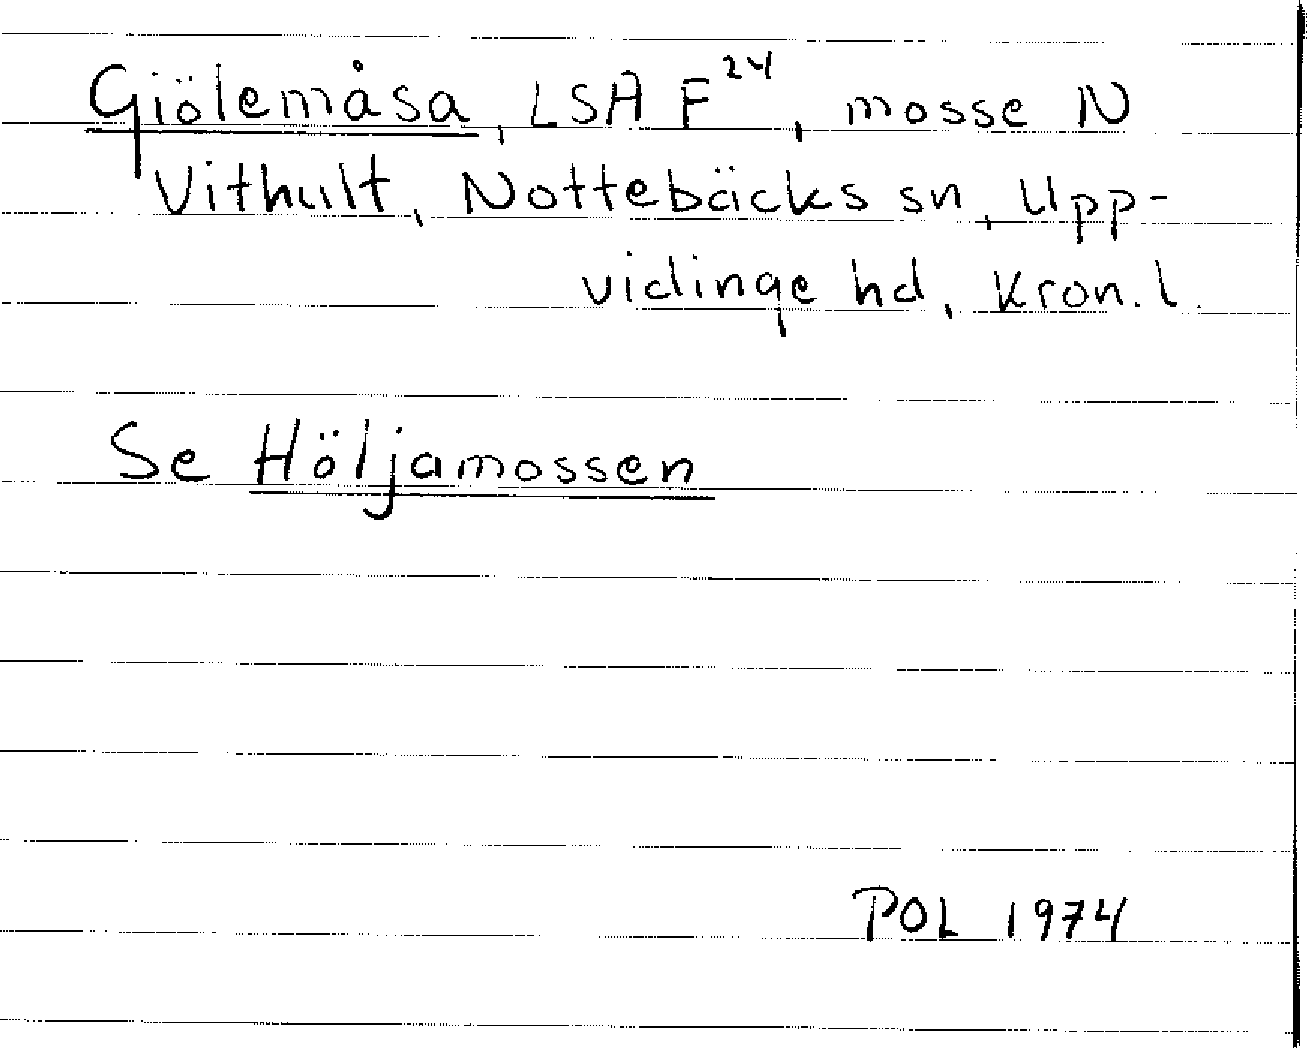 Giölemåsa, LSA F²⁴, mosse N
Vithult, Nottebäcks sn, Upp-
vidinge hd, Kron. l.
Se Höljamossen
POL 1974